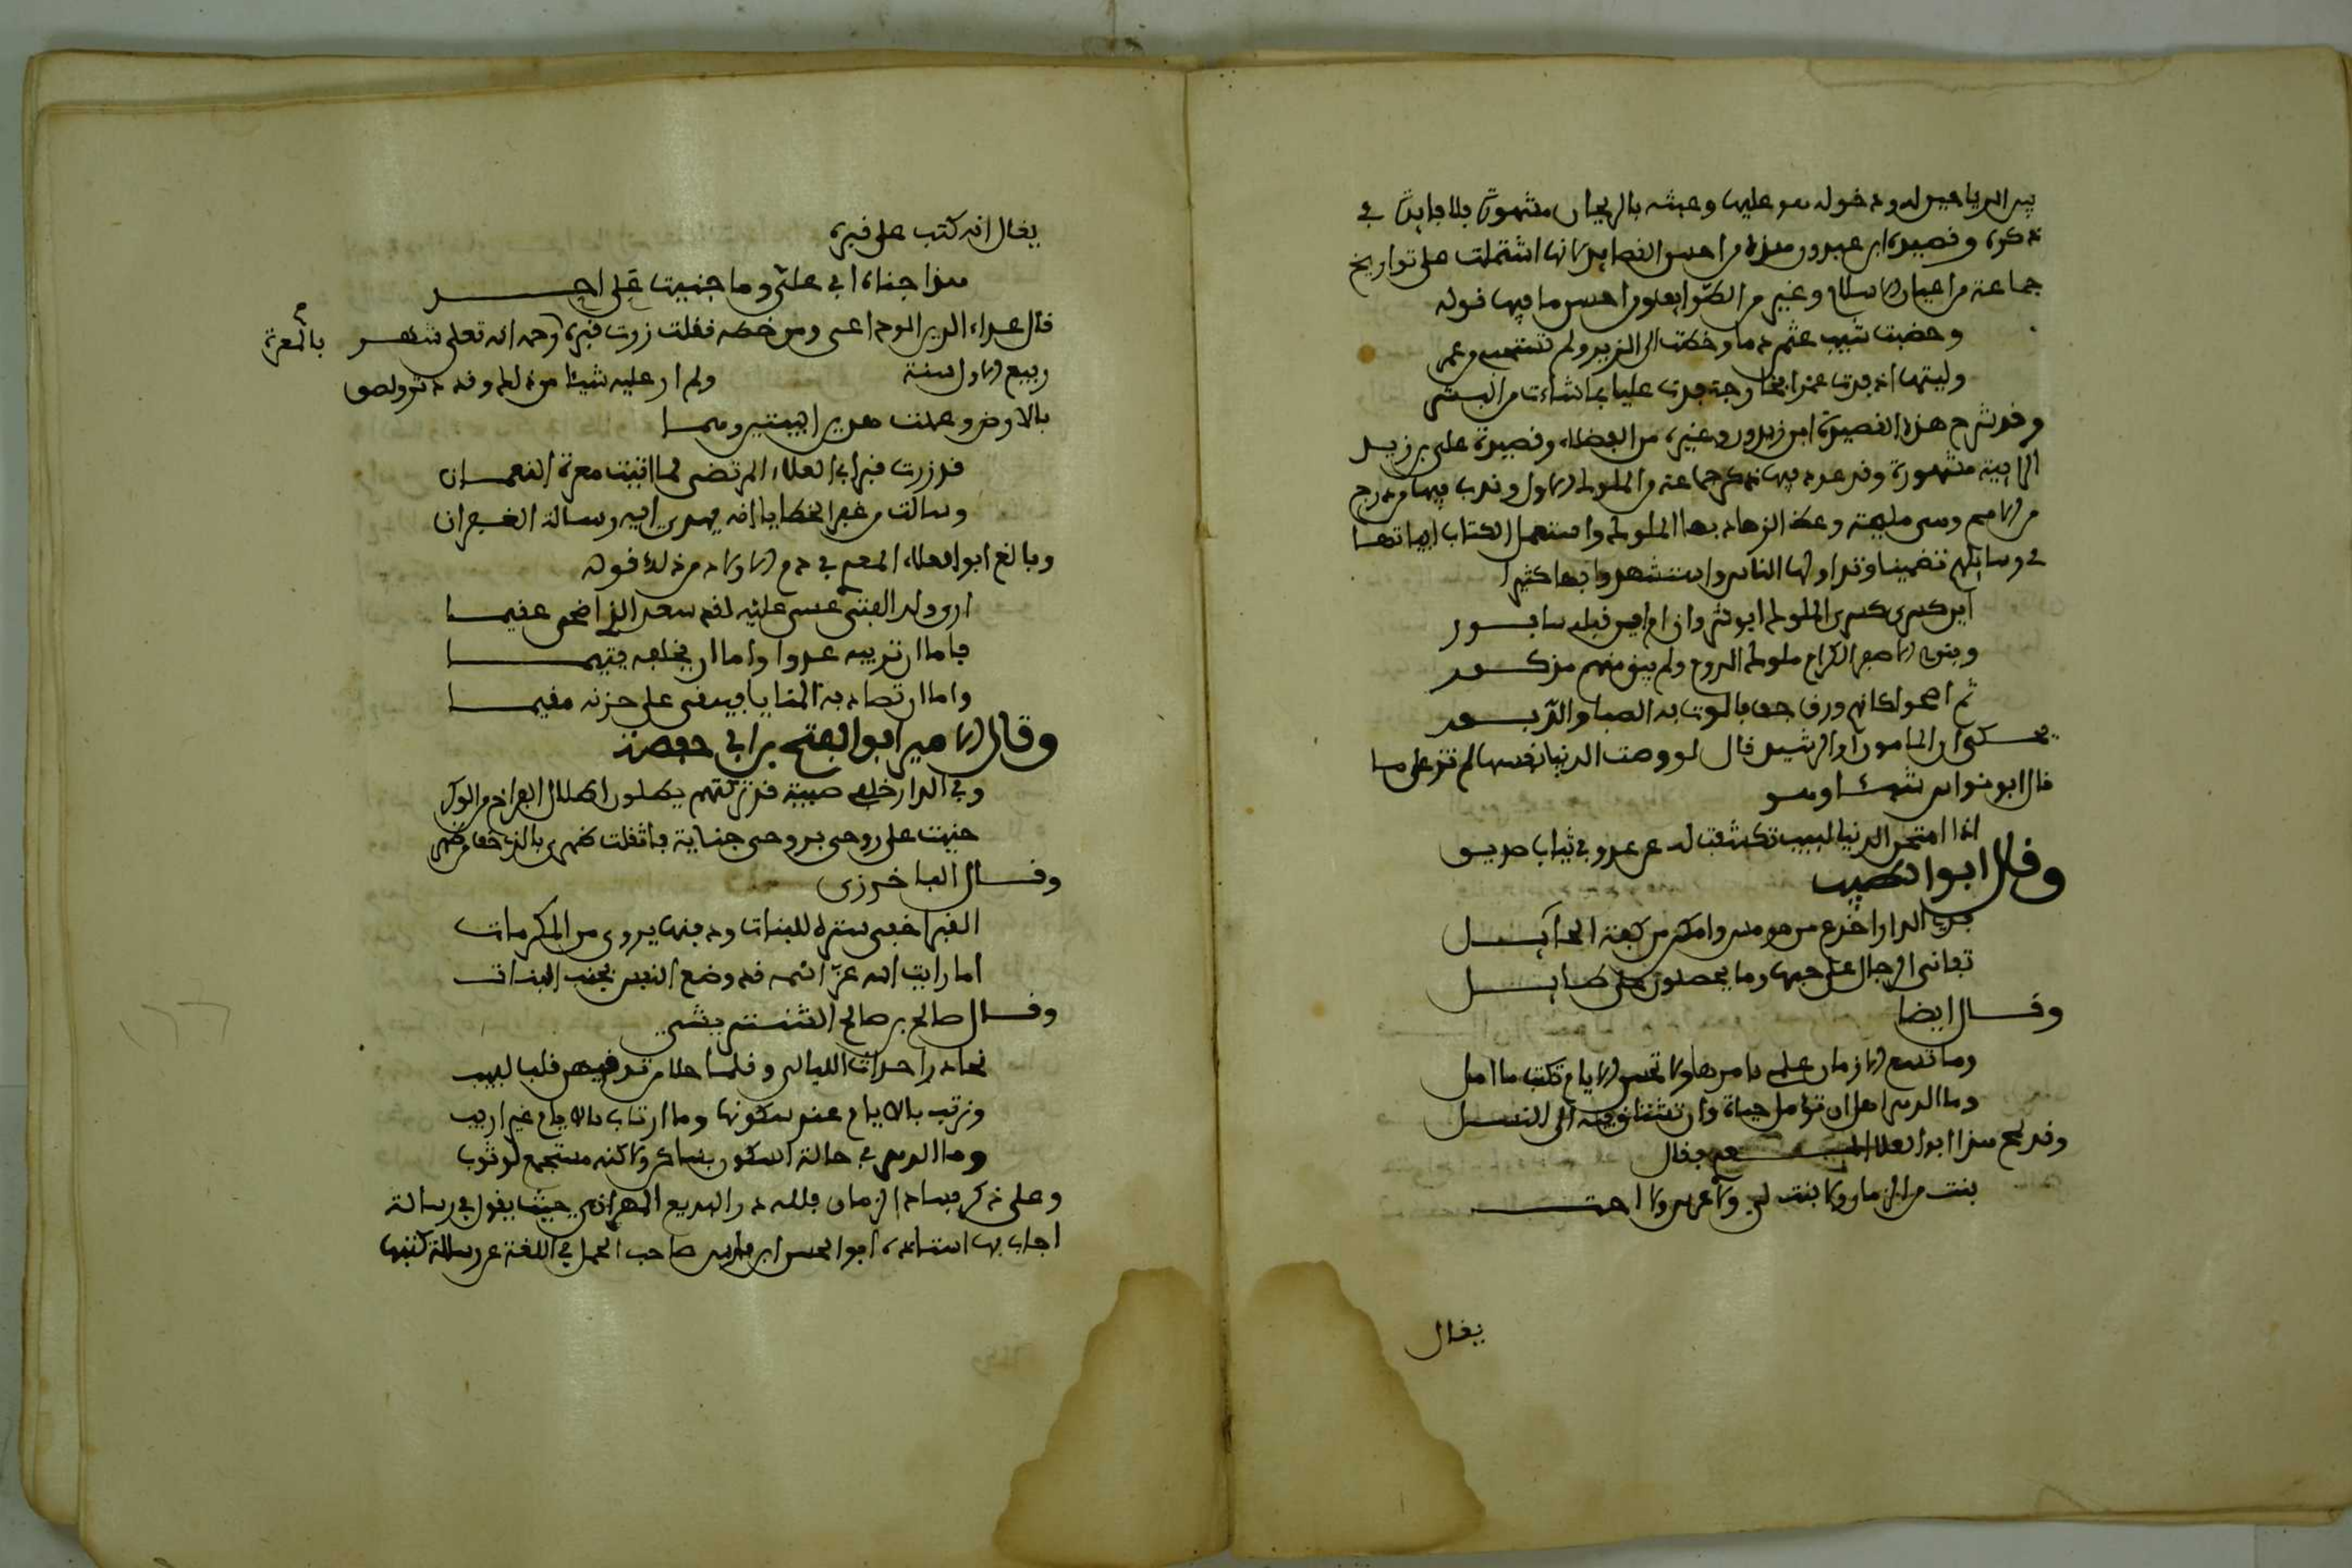 بين الرياحين له ودخوله هو عليها وعبثه بالريحان مشهورة فلا فايدة في
ذكره وقصيدة ابن عبدون هذه من احسن القصايد لانها اشتملت على تواريخ
جماعة من اعيان الاسلام وغيرهم من الطوايف ومن احسن ما فيها قوله
وخضبت شيب عثمن دما وخطت الى الزبير ولم تستحي من عمر
وليتها اذ فدت عمرا بخارجة فدت عليا بما شاءت من البشر
وقد شرح هذه القصيدة ابن زيدون وغيره من الفضلاء وقصيدة علي بن زيد
الرايية مشهورة وقد عدد فيها ذكر جماعة من الملوك الاول وندب فيها من درج
من الامم وهي مليحة وعظ الزهاد بها الملوك واستعمل الكتاب ابياتها
في رسايلهم تضمينا وتداولها الناس واستشهدوا بها كثيرا
اين كسرى كسرى الملوك ابو شروان ام اين قبله سابور
وبنو الاصفر الكرام ملوك الروم ولم يبق منهم مذكور
ثم اضحوا كانهم ورق جف فالوت به الصبا والدبور
يحكى ان المامون او الرشيد قال لو وصفت الدنيا نفسها لم تزد على ما
قال ابو نواس شيئا وهو
اذا امتحن الدنيا لبيب تكشفت له عن عدو في ثياب صديق
وقال ابو الطيب
فذي الدار اخدع من مومس وامكر من كفة الحابل
تفانى الرجال على حبها وما يحصلون على طايل
وقال ايضا
وما تسع الازمان علمي بامرها ولا تحسن الايام تكتب ما املي
وما الدهر اهل ان تؤمل حياة وان تشتاق فيه الى النسل
وقد لمح هذا ابو العلا المعري فقال
بنت من الزمان ولا بنت لي ولا عرس ولا اخت
يقال
يقال انه كتب على قبره
هذا جناه ابي علي وما جنيت على احد
قال علاء الدين الوداعي ومن خطه نقلت زرت قبره رحمه الله تعلى شهر
بالمعرة
ربيع الاول سنة ولم ار عليه شيئا من ذلك وقد دثر ولصق
بالارض وعملت هذين البيتين وهما
قد زرت قبر ابي العلاء المرتضى لما اتيت معرة النعمان
وسالت من غفر الخطايا انه يهدي اليه رسالة الغفران
وبالغ ابو العلاء المعري في ذم الاولاد من ذلك قوله
ارى ولد الفتى عبئا عليه لقد سعد الذي اضحى عقيما
فاما ان تربيه عدوا واما ان يخلفه يتيما
واما ان تصادفه المنايا فيبقى على حزنه مقيما
وقال الامير ابو الفتح بن ابي حصينة
وفي الدار خلفي صبية قد تركتهم يطلون اطلال الفراخ من الوكر
جنيت على روحي بروحي جناية فاثقلت ظهري بالذي خف من ظهري
وقال الباخرزي
القبر اخفى سترة للبنات ودفنها يروى من المكرمات
اما رايت الله عز اسمه قد وضع النعش بجنب البنات
وقال صالح بن صالح الشنتريني
نحاذر احداث الليالي وقلما خلا من توقيهن قلب لبيب
ونرتاب بالايام عند سكونها وما ارتاب بالايام غير اريب
وما الدهر في حالة السكون بساكن ولاكنه مستجمع لوثوب
وعلى ذكر فساد الزمان فلله در البديع الهمداني حيث يقول في رسالة
اجاب بها استاذه ابو الحسن ابن فارس صاحب المجمل في اللغة عن رسالة كتبها